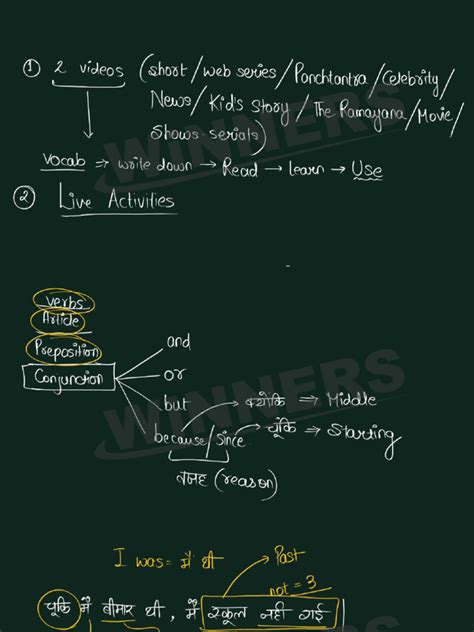 ① 2 videos (short/web series/Panchtantra/Celebrity/
News/Kid's Story/The Ramayana/Movie/
Shows-serials)
vocab ⇒ write down → Read → learn → Use
② Live Activities
WINNERS
verbs
Article
Preposition
Conjunction
and
or
but → क्योंकि ⇒ Middle
because/since → चूंकि ⇒ Starting
वजह (reason)
WINNERS
I was = मैं थी
Past
not = 3
चूंकि मैं बीमार थी, मैं स्कूल नहीं गई